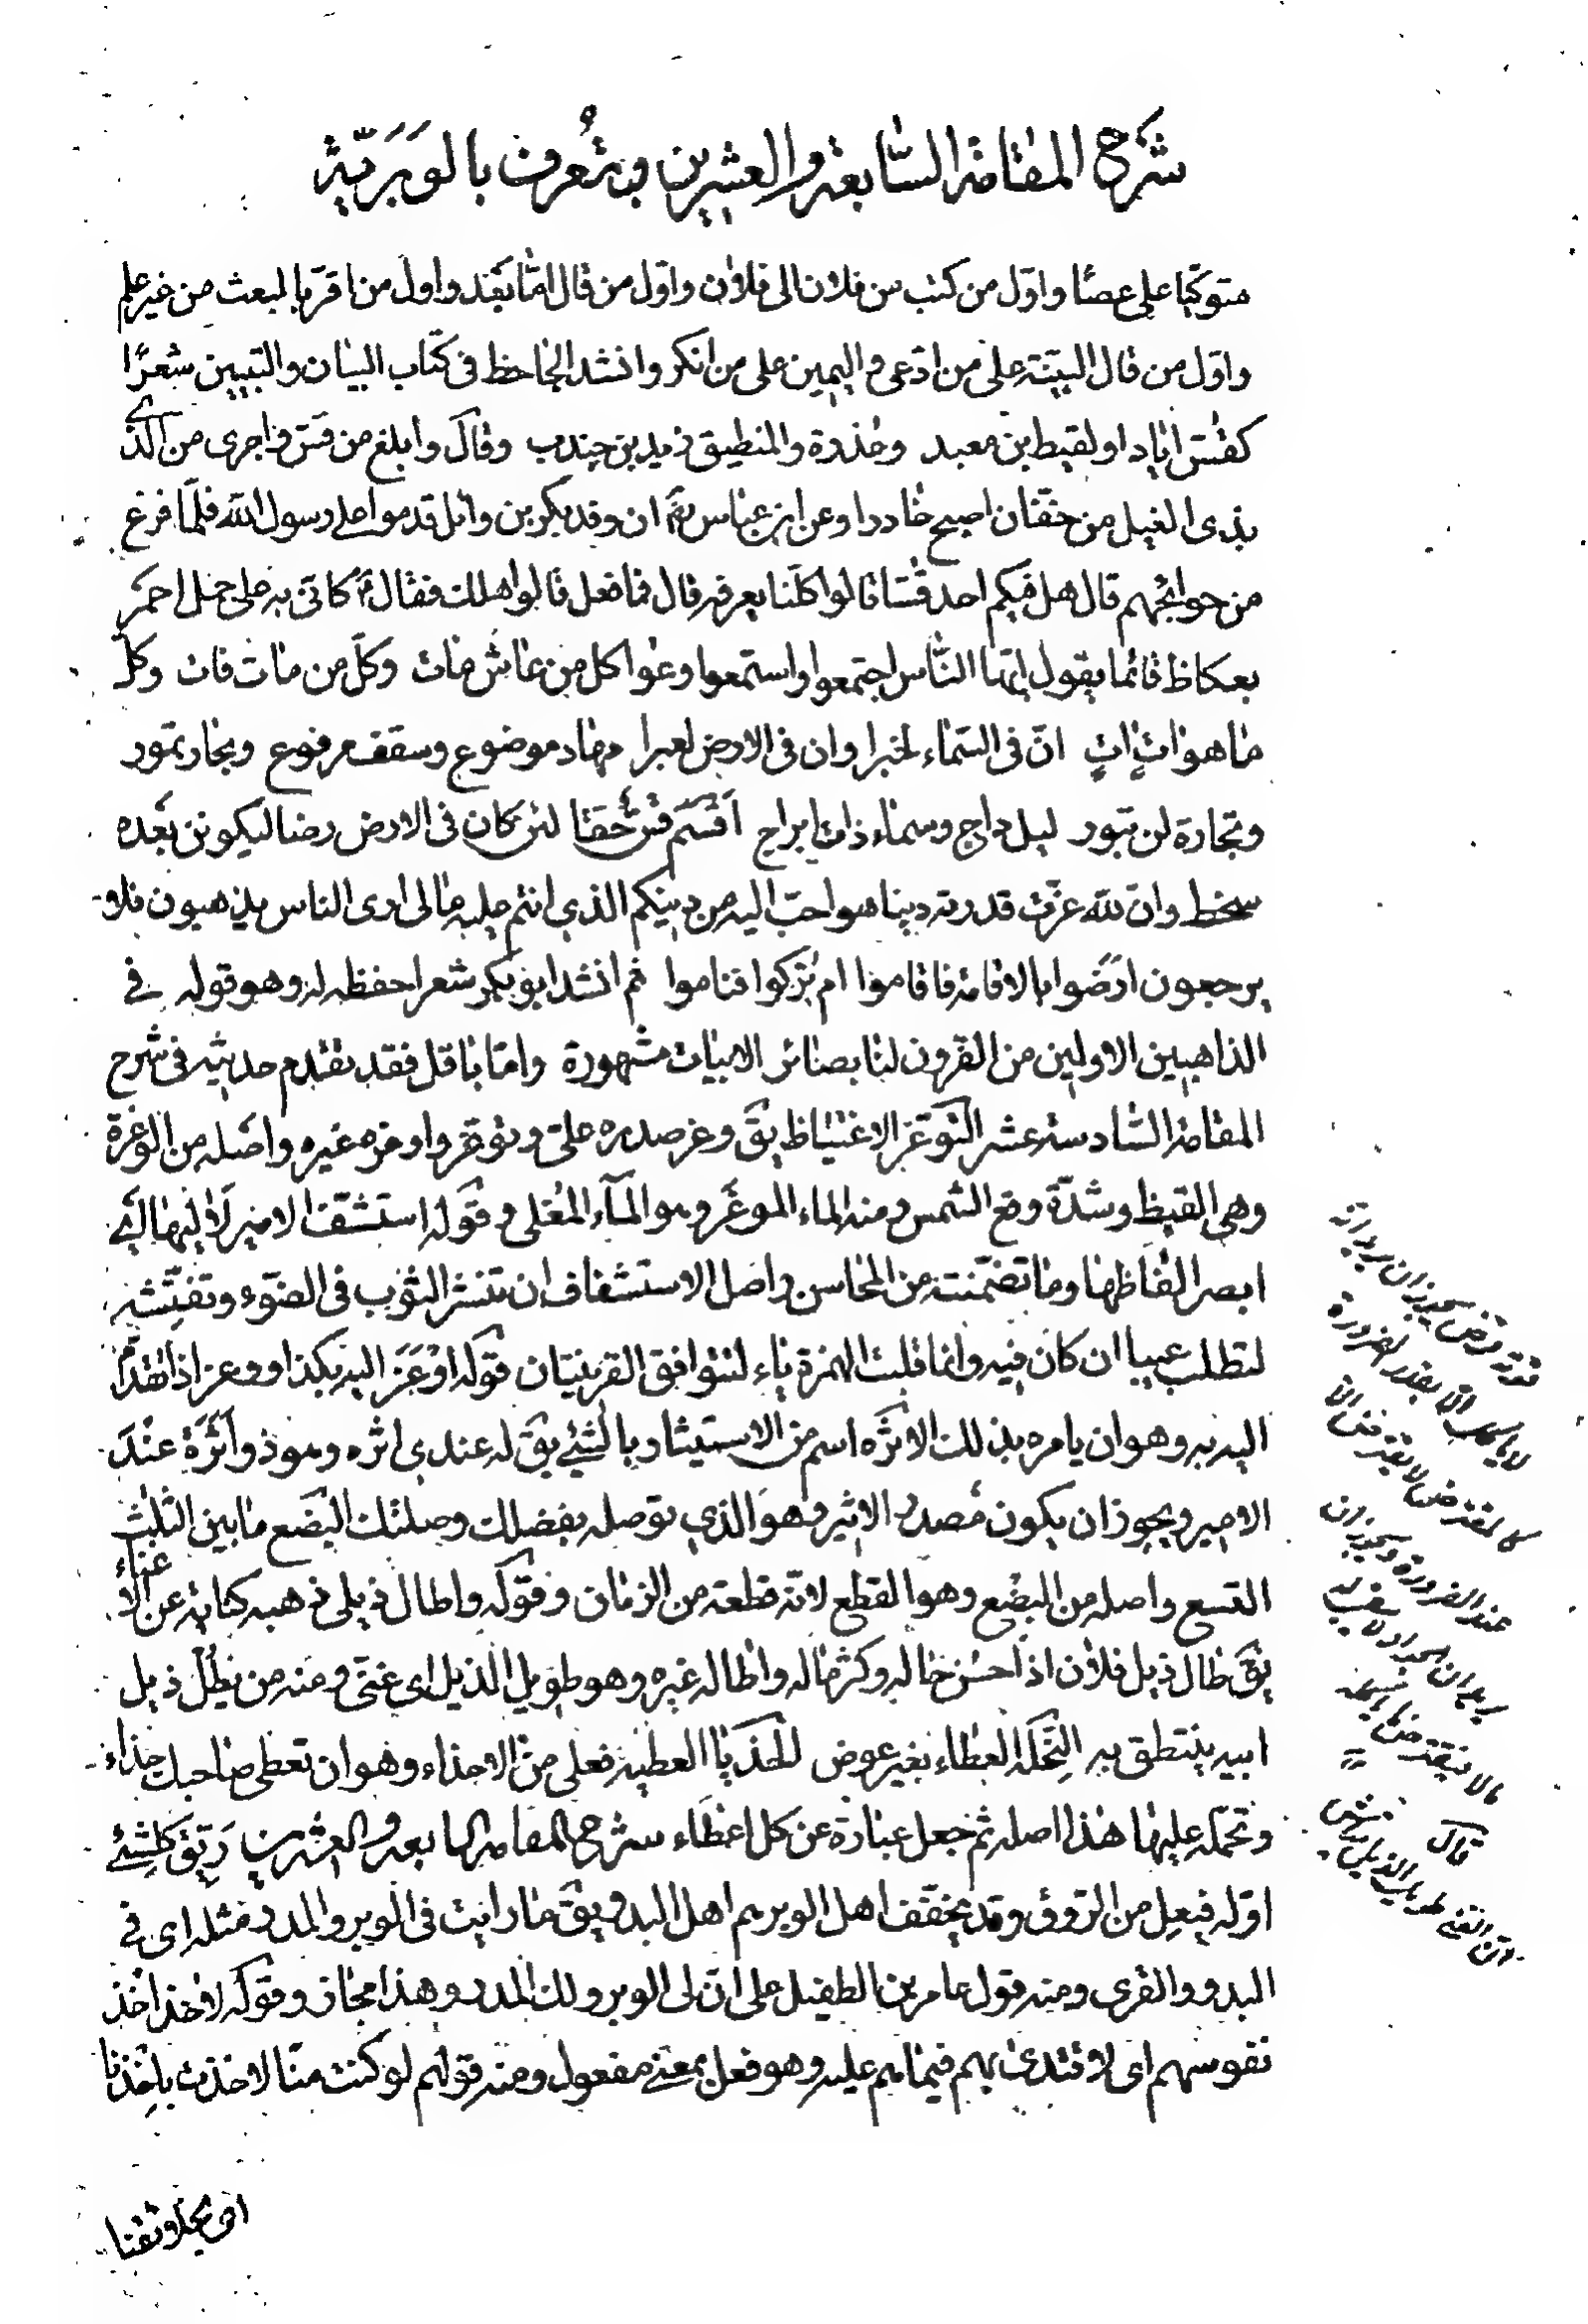 شرح المقامة السّابعة والعشرين وتُعرف بالوَبَريّة
متوكّيا على عصًا واوّل من كتب من فلان الى فلان واوّل من قال امّا بعد واول من اقرّ بالبعث من غير علم
واوّل من قال البيّنة على من ادّعى واليمين على من انكر وانشد الجاحظ فى كتاب البيان والتبيين شعرًا
كقسّ اياد او لقيط بن معبد وعذرة والمنطيق زيد بن جندب وقال وابلغ من قسّ واجرى من الّذى
بذى الغيل من خفّان اصبح خادرا وعن ابن عباس رض ان وفد بكر بن وائل قدموا على رسول الله فلمّا فرغ
من حوائجهم قال هل فيكم احد قسّا قالوا كلّنا يعرفه قال فما فعل قالوا هلك فقال كانّى به على جمل احمَر
بعكاظ قائما يقول ايّها النّاس اجتمعوا واستمعوا وعُوا كل من عاش مات وكلّ من مات فات وكلّ
ما هو اتٍ اتٍ انّ فى السّماء لخبرا وان فى الارض لعبرا مهاد موضوع وسقف مرفوع وبحار تمور
وتجارة لن تبور ليل داج وسماء ذات ابراج اقسَم قسّ حَقّا لئن كان فى الارض رضا ليكونن بعده
سخط وانّ لله عزّت قدرته دينا هو احبّ اليه من دينكم الذى انتم عليه ما لى ارى الناس يذهبون فلا
يرجعون ارَضوا بالاقامة فاقاموا ام تركوا فناموا ثم انشد ابو بكر شعرا حفظه له وهو قوله فى
الذاهبين الاولين من القرون لنا بصائر الابيات مشهورة وامّا باقل فقد تقدم حديثه فى شرح
المقامة السّادسة عشر التوغّر الاغتياظ يق وغر صدره علىّ وتوغّر واوغره غيره واصله من الوغرة
وهى القيظ وشدّة وقع الشمس ومنه الماء الموغَر وهو المآء المُغلى وقوله استشفّ الامير لآليها اى
ابصر الفاظها وما تضمّنته من المحاسن واصل الاستشفاف ان تنشر الثوب فى الضّوء وتفتّشه
لتطلب عيبا ان كان فيه وانما قلبت الهمزة ياء لتتوافق القرينتان قوله اوْعَزَ اليه بكذا ووعز اذا تقدّم
اليه به وهو ان يامره بذلك الاثَرة اسم من الاستيثار بالشيئ يق له عندى اثره وهو ذو اَثَرَة عنْدَ
الامير ويجوز ان يكون مصدر الاثير وهو الذى توصله بفضلك وصلتك البضع ما بين الثلث
التسع واصله من البضْع وهو القطع لانّه قطعة من الزمان وقوله واطال ذيلى ذهبه كناية عن الاغناء
يق طال ذيل فلان اذا حسُن حاله وكثر ماله واطاله غيره وهو طويل الذيل اى غنىّ ومنه من يَطُلْ ذيل
ابيه ينتطق به النِحلة العطاء بغير عوض الحُذيّا العطية فعلى من الاحذاء وهو ان تعطى صاحبك حذاء
وتحمله عليها هذا اصله ثم جعل عبارة عن كل اعطاء شرح المقامة السابعة والعشرين رَيّق كل شيئ
اوّله فيعِل من الروق وقد يخفّف اهل الوبر هم اهل البدو يق ما رايت فى الوبر والمدر مثله اى فى
البدو والقرى ومنه قول عامر بن الطفيل على انّ لى الوبر ولك المدر وهذا مجاز وقوله لاخذ اخْذ
نفوسهم اى لاقتدى بهم فيما هم عليه وهو فعل بمعنى مفعول ومنه قولهم لو كنت منّا لاخذت باخذنا
قال